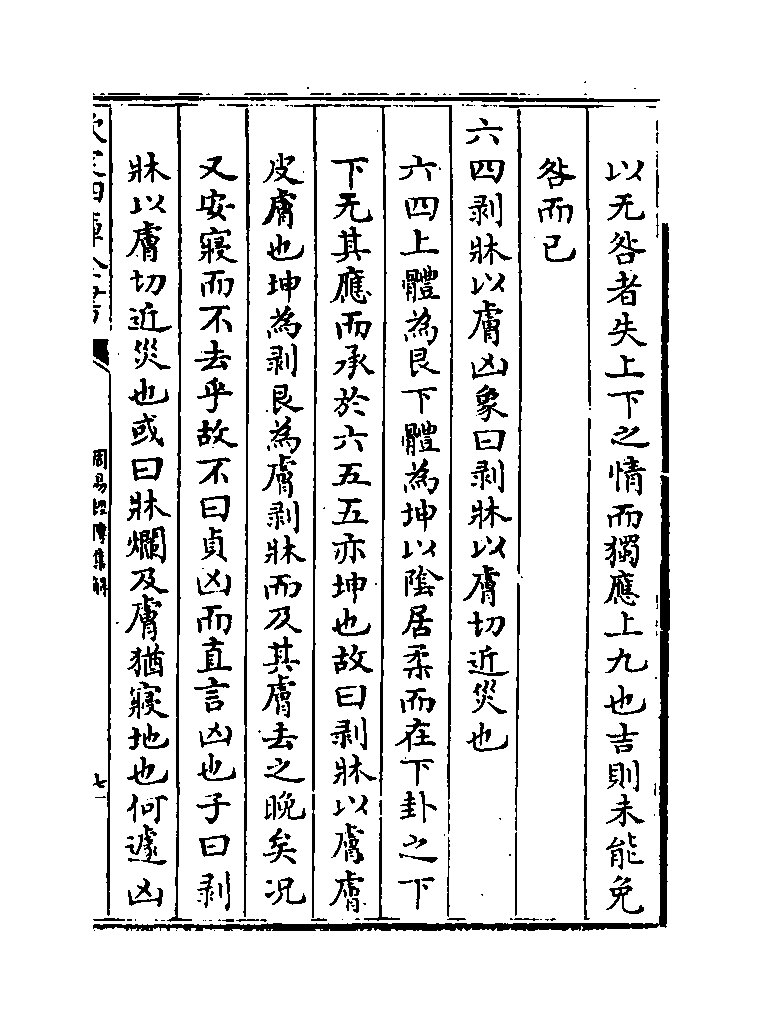 以无咎者失上下之情而獨應上九也吉則未能免
咎而已
六四剥牀以膚凶象曰剥牀以膚切近災也
六四上體為艮下體為坤以陰居柔而在下卦之下
下无其應而承於六五五亦坤也故曰剥牀以膚膚
皮膚也坤為剥艮為膚剥牀而及其膚去之晚矣况
又安寢而不去乎故不曰貞凶而直言凶也子曰剥
牀以膚切近災也或曰牀爛及膚猶寢地也何遽凶
欽定四庫全書
周易經傳集解
七